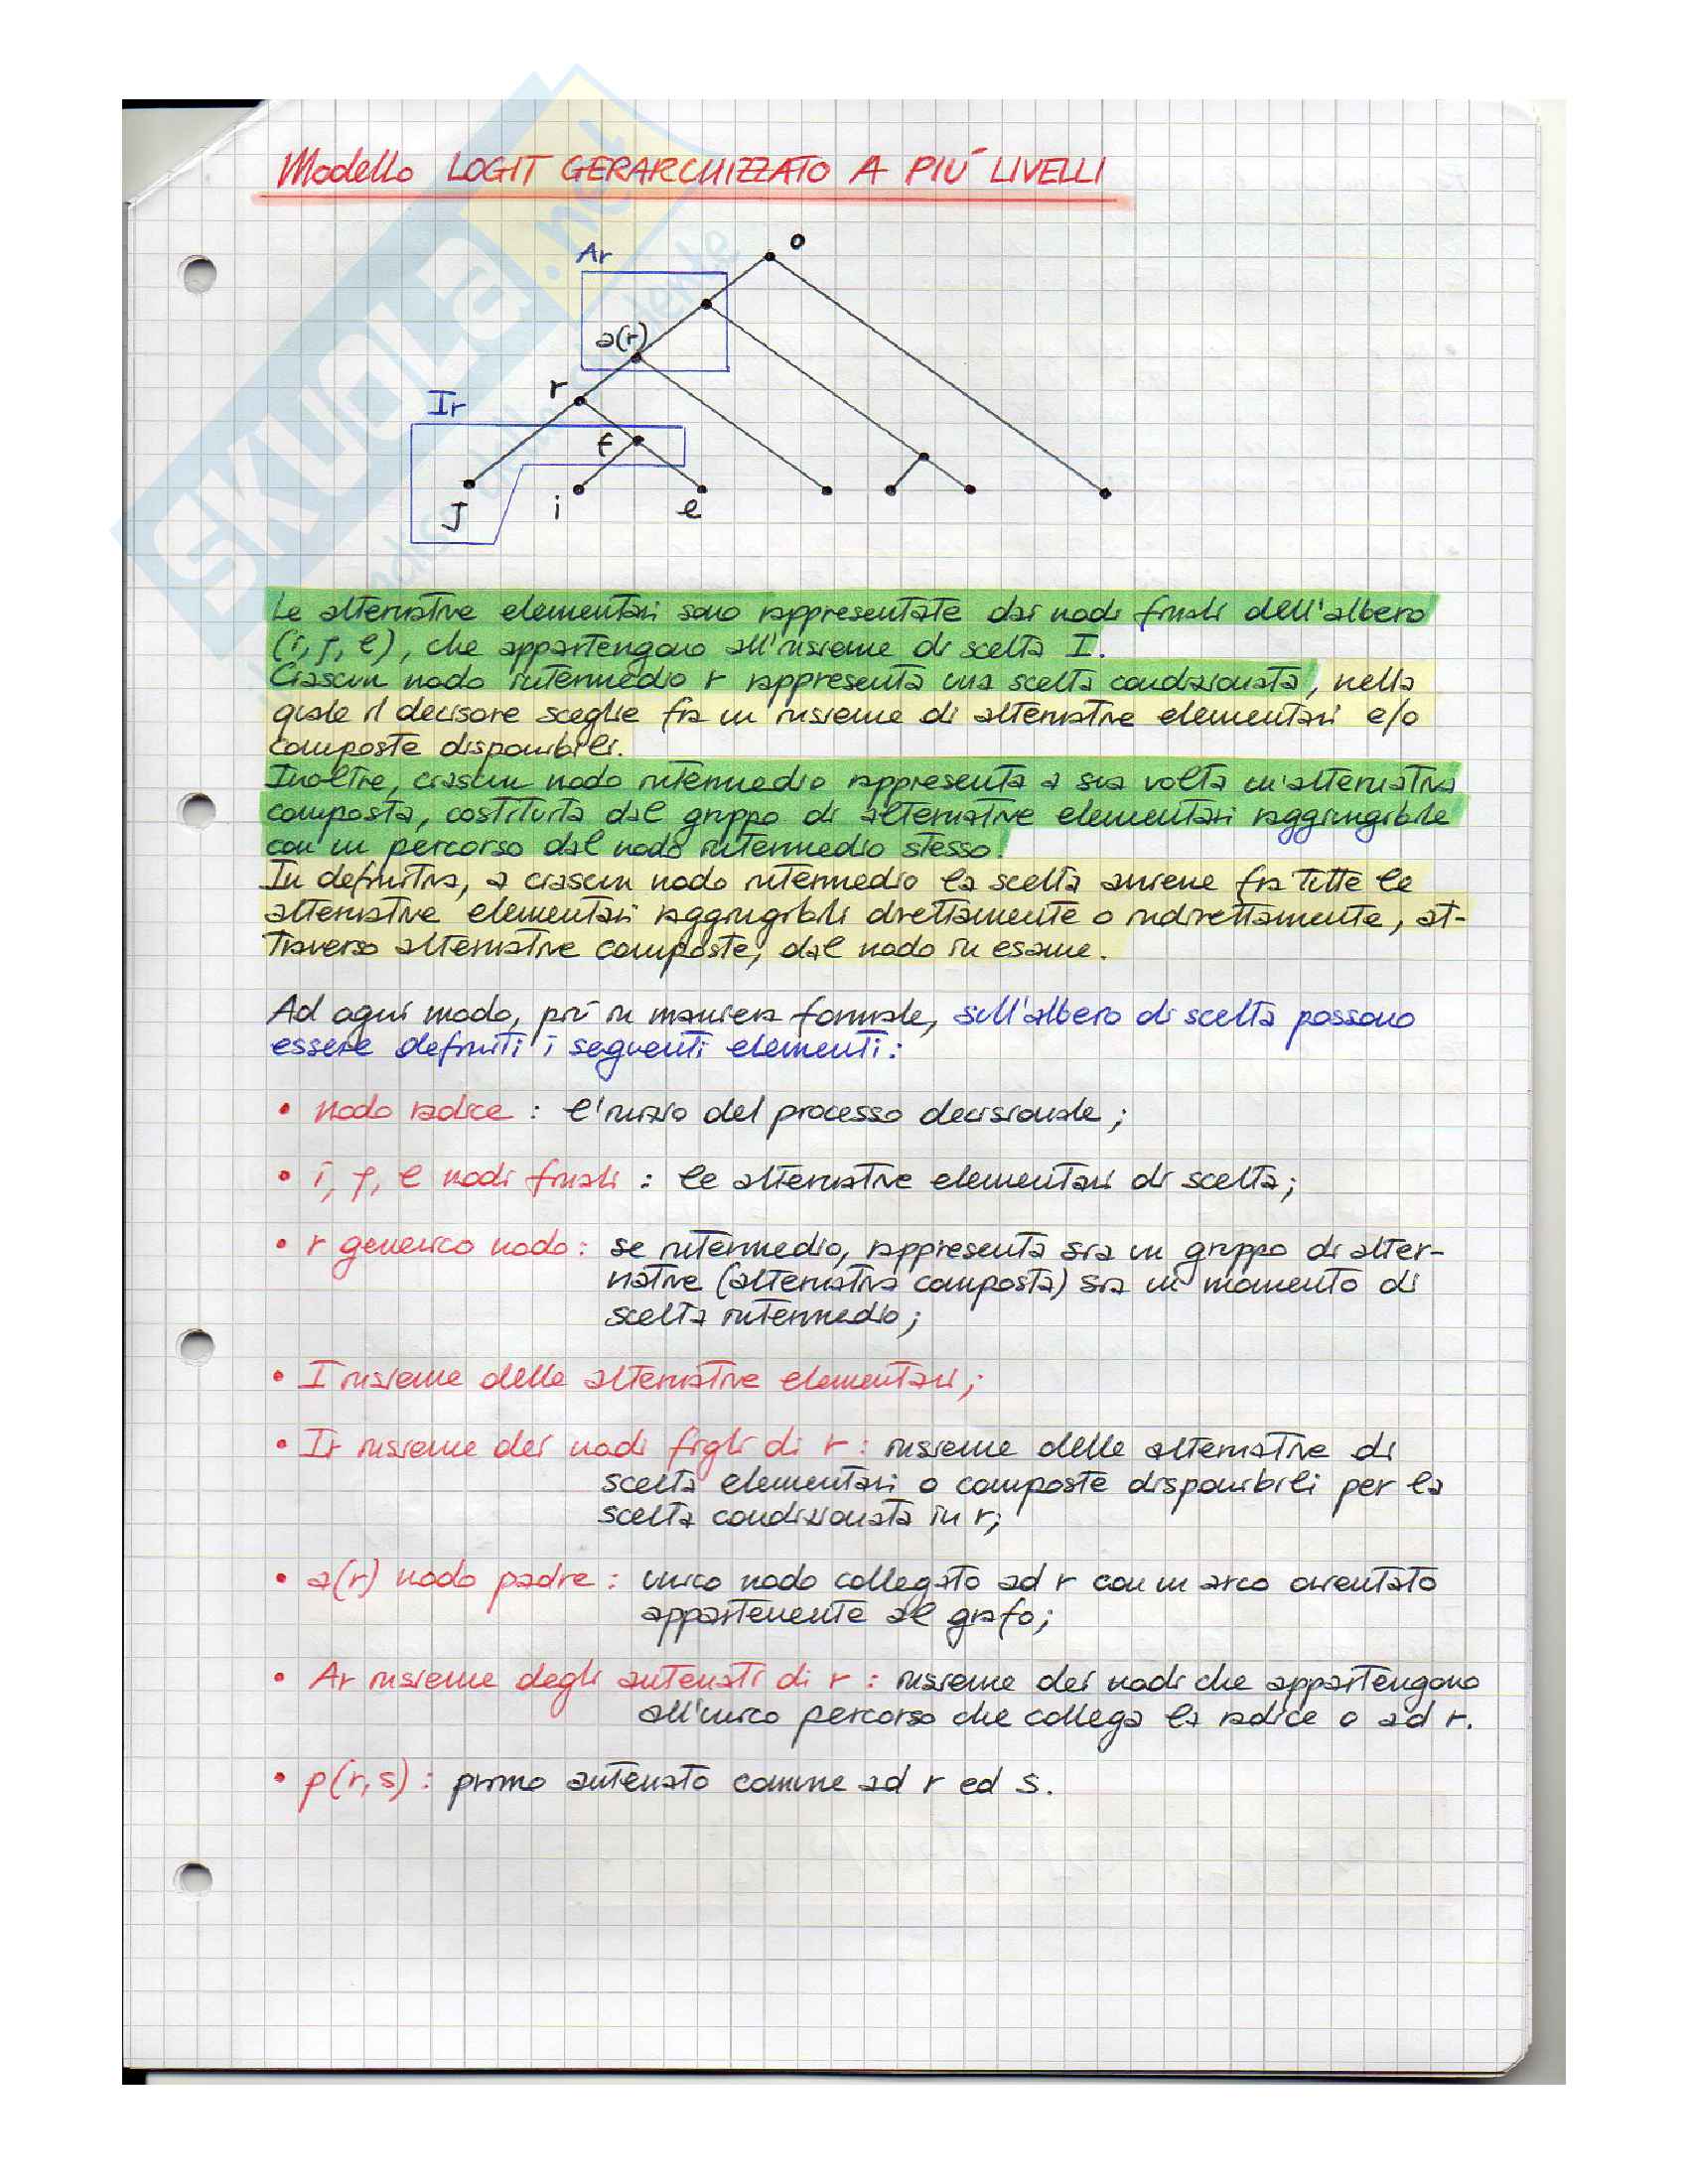 Modello LOGIT GERARCHIZZATO A PIÙ LIVELLI
o
Ar
a(r)
r
Ir
f
J
i
e
SKUOLA.net
Le alternative elementari sono rappresentate dai nodi finali dell'albero
(i, j, e), che appartengono all'insieme di scelta I.
Ciascun nodo intermedio r rappresenta una scelta condizionata, nella
quale il decisore sceglie fra un insieme di alternative elementari e/o
composte disponibili.
Inoltre, ciascun nodo intermedio rappresenta a sua volta un'alternativa
composta, costituita dal gruppo di alternative elementari raggiungibile
con un percorso dal nodo intermedio stesso.
In definitiva, a ciascun nodo intermedio la scelta avviene fra tutte le
alternative elementari raggiungibili direttamente o indirettamente, at-
traverso alternative composte, dal nodo in esame.
Ad ogni modo, più in maniera formale, sull'albero di scelta possono
essere definiti i seguenti elementi:
• nodo radice : l'inizio del processo decisionale;
• i, j, e nodi finali : le alternative elementari di scelta;
• r generico nodo : se intermedio, rappresenta sia un gruppo di alter-
native (alternativa composta) sia un momento di
scelta intermedio;
• I insieme delle alternative elementari;
• Ir insieme dei nodi figli di r : insieme delle alternative di
scelta elementari o composte disponibili per la
scelta condizionata in r;
• a(r) nodo padre : unico nodo collegato ad r con un arco orientato
appartenente al grafo;
• Ar insieme degli antenati di r : insieme dei nodi che appartengono
all'unico percorso che collega la radice o ad r.
• p(r,s) : primo antenato comune ad r ed s.